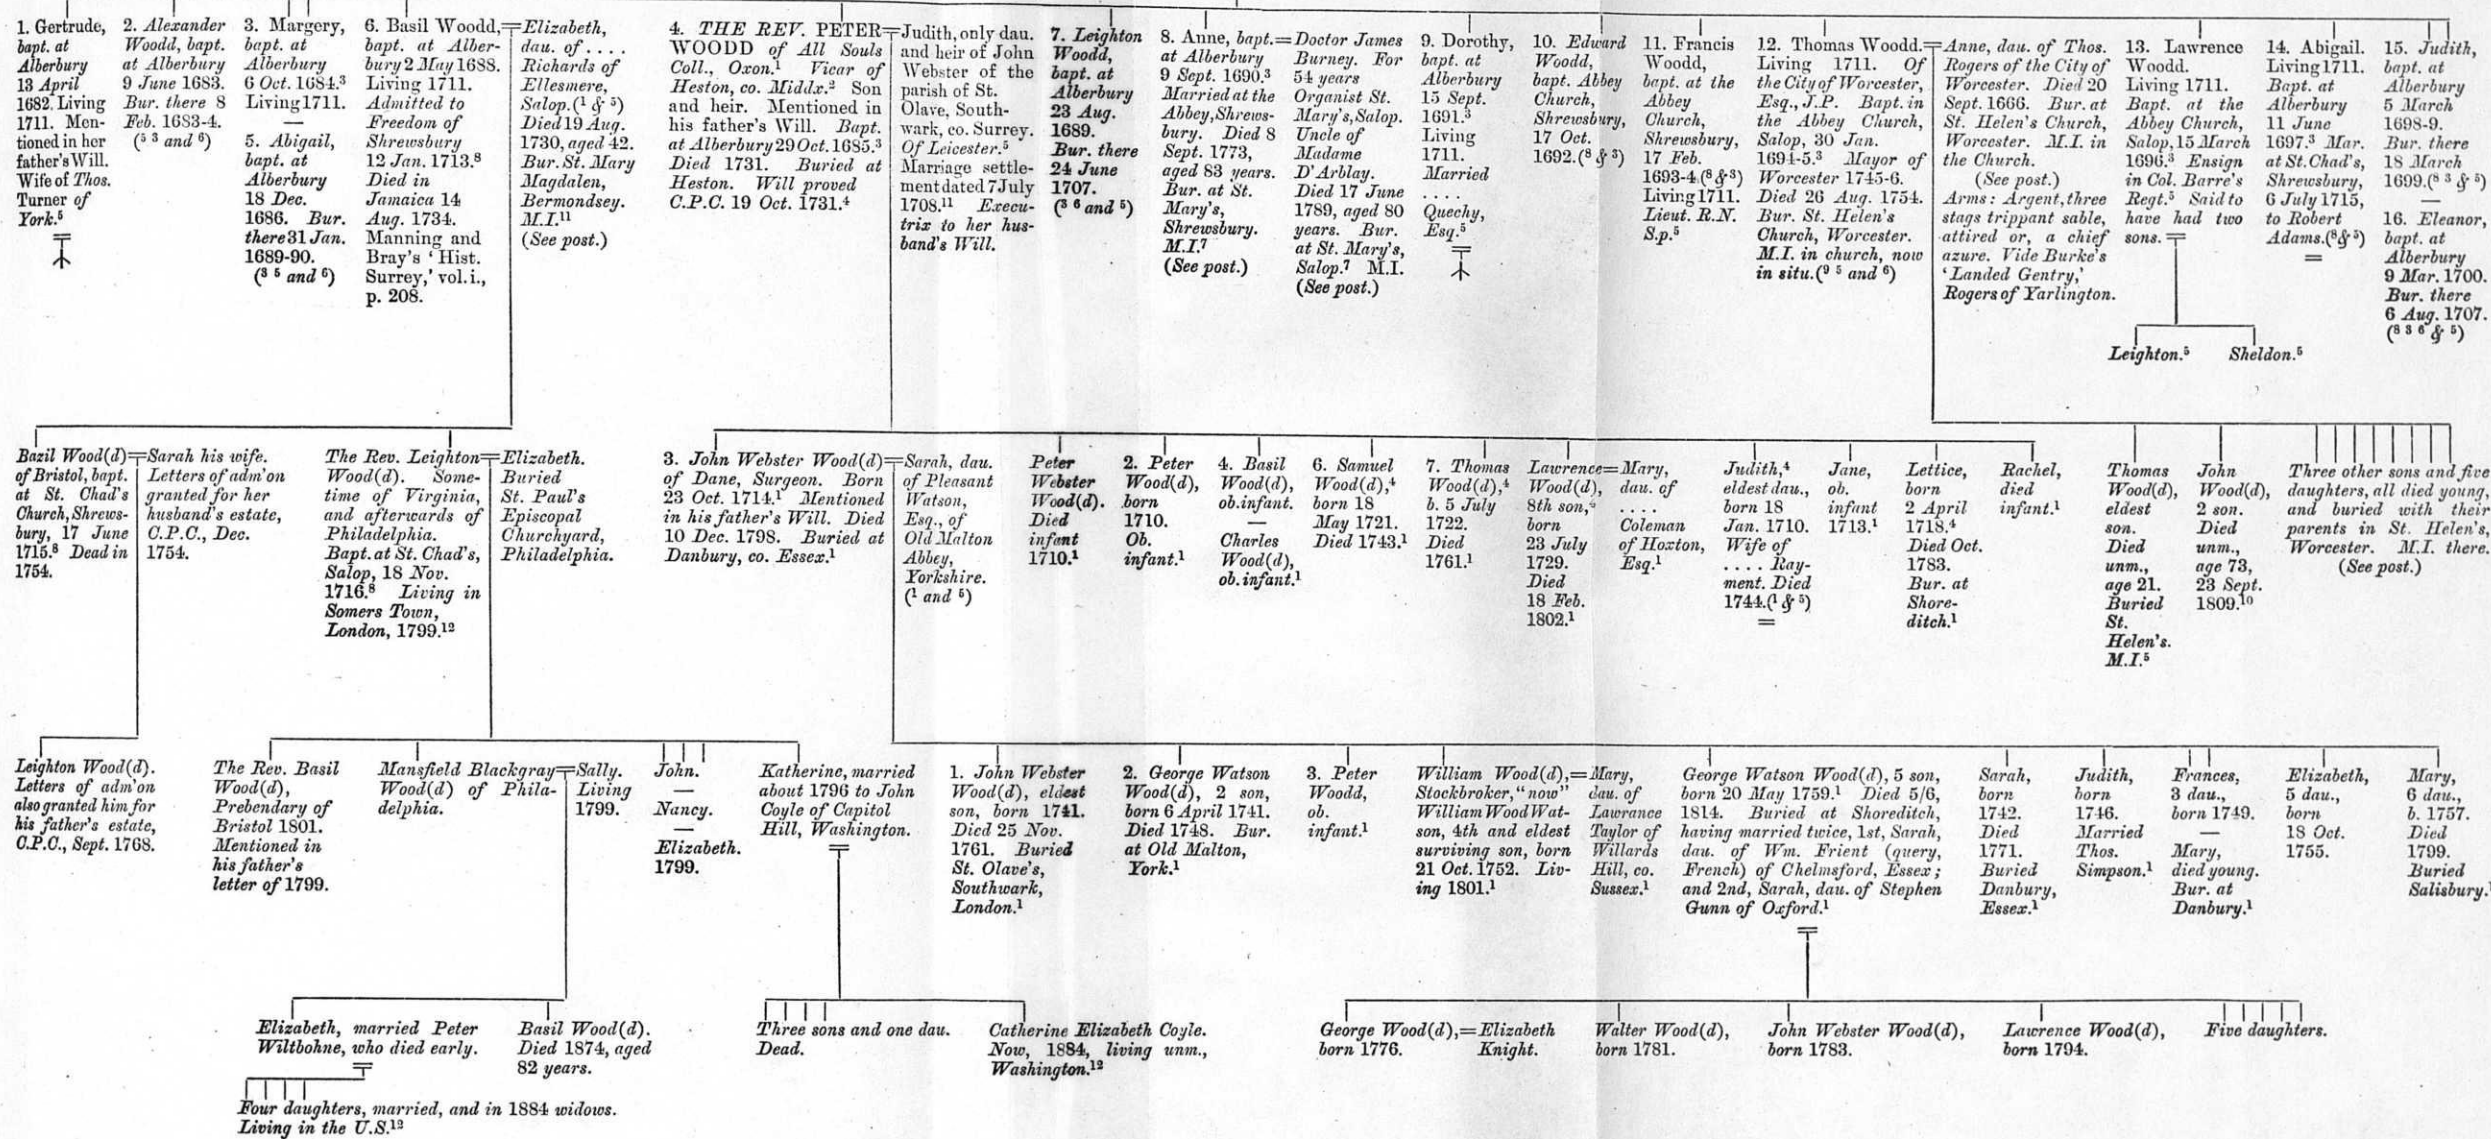 1. Gertrude,
bapt. at
Alberbury
13 April
1682. Living
1711. Men-
tioned in her
father's Will.
Wife of Thos.
Turner of
York.⁵
2. Alexander
Woodd, bapt.
at Alberbury
9 June 1683.
Bur. there 8
Feb. 1683-4.
(⁵ ³ and ⁶)
3. Margery,
bapt. at
Alberbury
6 Oct. 1684.³
Living 1711.
—
5. Abigail,
bapt. at
Alberbury
18 Dec.
1686. Bur.
there 31 Jan.
1689-90.
(³ ⁵ and ⁶)
6. Basil Woodd,
bapt. at Alber-
bury 2 May 1688.
Living 1711.
Admitted to
Freedom of
Shrewsbury
12 Jan. 1713.⁸
Died in
Jamaica 14
Aug. 1734.
Manning and
Bray's ‘Hist.
Surrey,’ vol. i.,
p. 208.
Elizabeth,
dau. of . . . .
Richards of
Ellesmere,
Salop.(¹ & ⁵)
Died 19 Aug.
1730, aged 42.
Bur. St. Mary
Magdalen,
Bermondsey.
M.I.¹¹
(See post.)
4. THE REV. PETER
WOODD of All Souls
Coll., Oxon.¹ Vicar of
Heston, co. Middx.² Son
and heir. Mentioned in
his father's Will. Bapt.
at Alberbury 29 Oct. 1685.³
Died 1731. Buried at
Heston. Will proved
C.P.C. 19 Oct. 1731.⁴
Judith, only dau.
and heir of John
Webster of the
parish of St.
Olave, South-
wark, co. Surrey.
Of Leicester.⁵
Marriage settle-
ment dated 7 July
1708.¹¹ Execu-
trix to her hus-
band's Will.
7. Leighton
Woodd,
bapt. at
Alberbury
23 Aug.
1689.
Bur. there
24 June
1707.
(³ ⁶ and ⁵)
8. Anne, bapt.
at Alberbury
9 Sept. 1690.³
Married at the
Abbey, Shrews-
bury. Died 8
Sept. 1773,
aged 83 years.
Bur. at St.
Mary's,
Shrewsbury.
M.I.⁷
(See post.)
Doctor James
Burney. For
54 years
Organist St.
Mary's, Salop.
Uncle of
Madame
D'Arblay.
Died 17 June
1789, aged 80
years. Bur.
at St. Mary's,
Salop.⁷ M.I.
(See post.)
9. Dorothy,
bapt. at
Alberbury
15 Sept.
1691.³
Living
1711.
Married
. . . .
Quechy,
Esq.⁵
10. Edward
Woodd,
bapt. Abbey
Church,
Shrewsbury,
17 Oct.
1692.(⁸ & ³)
11. Francis
Woodd,
bapt. at the
Abbey
Church,
Shrewsbury,
17 Feb.
1693-4.(⁸ & ³)
Living 1711.
Lieut. R.N.
S.p.⁵
12. Thomas Woodd.
Living 1711. Of
the City of Worcester,
Esq., J.P. Bapt. in
the Abbey Church,
Salop, 30 Jan.
1694-5.³ Mayor of
Worcester 1745-6.
Died 26 Aug. 1754.
Bur. St. Helen's
Church, Worcester.
M.I. in church, now
in situ.(⁹ ⁵ and ⁶)
Anne, dau. of Thos.
Rogers of the City of
Worcester. Died 20
Sept. 1666. Bur. at
St. Helen's Church,
Worcester. M.I. in
the Church.
(See post.)
Arms: Argent, three
stags trippant sable,
attired or, a chief
azure. Vide Burke's
‘Landed Gentry,’
Rogers of Yarlington.
13. Lawrence
Woodd.
Living 1711.
Bapt. at the
Abbey Church,
Salop, 15 March
1696.³ Ensign
in Col. Barre's
Regt.⁵ Said to
have had two
sons.
14. Abigail.
Living 1711.
Bapt. at
Alberbury
11 June
1697.³ Mar.
at St. Chad's,
Shrewsbury,
6 July 1715,
to Robert
Adams.(⁸ & ⁵)
15. Judith,
bapt. at
Alberbury
5 March
1698-9.
Bur. there
18 March
1699.(⁸ ³ & ⁵)
—
16. Eleanor,
bapt. at
Alberbury
9 Mar. 1700.
Bur. there
6 Aug. 1707.
(⁸ ³ ⁶ & ⁵)
Leighton.⁵
Sheldon.⁵
Bazil Wood(d)
of Bristol, bapt.
at St. Chad's
Church, Shrews-
bury, 17 June
1715.⁸ Dead in
1754.
Sarah his wife.
Letters of adm'on
granted for her
husband's estate,
C.P.C., Dec.
1754.
The Rev. Leighton
Wood(d). Some-
time of Virginia,
and afterwards of
Philadelphia.
Bapt. at St. Chad's,
Salop, 18 Nov.
1716.⁸ Living in
Somers Town,
London, 1799.¹²
Elizabeth.
Buried
St. Paul's
Episcopal
Churchyard,
Philadelphia.
3. John Webster Wood(d)
of Dane, Surgeon. Born
23 Oct. 1714.¹ Mentioned
in his father's Will. Died
10 Dec. 1798. Buried at
Danbury, co. Essex.¹
Sarah, dau.
of Pleasant
Watson,
Esq., of
Old Malton
Abbey,
Yorkshire.
(¹ and ⁵)
Peter
Webster
Wood(d).
Died
infant
1710.¹
2. Peter
Wood(d),
born
1710.
Ob.
infant.¹
4. Basil
Wood(d),
ob. infant.
—
Charles
Wood(d),
ob. infant.¹
6. Samuel
Wood(d),⁴
born 18
May 1721.
Died 1743.¹
7. Thomas
Wood(d),⁴
b. 5 July
1722.
Died
1761.¹
Lawrence
Wood(d),
8th son,
born
23 July
1729.
Died
18 Feb.
1802.¹
Mary,
dau. of
. . . .
Coleman
of Hoxton,
Esq.¹
Judith,⁴
eldest dau.,
born 18
Jan. 1710.
Wife of
. . . . Ray-
ment. Died
1744.(¹ & ⁵)
Jane,
ob.
infant
1713.¹
Lettice,
born
2 April
1718.⁴
Died Oct.
1783.
Bur. at
Shore-
ditch.¹
Rachel,
died
infant.¹
Thomas
Wood(d),
eldest
son.
Died
unm.,
age 21.
Buried
St.
Helen's.
M.I.⁵
John
Wood(d),
2 son.
Died
unm.,
age 73,
23 Sept.
1809.¹⁰
Three other sons and five
daughters, all died young,
and buried with their
parents in St. Helen's,
Worcester. M.I. there.
(See post.)
Leighton Wood(d).
Letters of adm'on
also granted him for
his father's estate,
C.P.C., Sept. 1768.
The Rev. Basil
Wood(d),
Prebendary of
Bristol 1801.
Mentioned in
his father's
letter of 1799.
Mansfield Blackgray
Wood(d) of Phila-
delphia.
Sally.
Living
1799.
John.
—
Nancy.
—
Elizabeth.
1799.
Katherine, married
about 1796 to John
Coyle of Capitol
Hill, Washington.
1. John Webster
Wood(d), eldest
son, born 1741.
Died 25 Nov.
1761. Buried
St. Olave's,
Southwark,
London.¹
2. George Watson
Wood(d), 2 son,
born 6 April 1741.
Died 1748. Bur.
at Old Malton,
York.¹
3. Peter
Woodd,
ob.
infant.¹
William Wood(d),
Stockbroker, “now”
William Wood Wat-
son, 4th and eldest
surviving son, born
21 Oct. 1752. Liv-
ing 1801.¹
Mary,
dau. of
Lawrance
Taylor of
Willards
Hill, co.
Sussex.¹
George Watson Wood(d), 5 son,
born 20 May 1759.¹ Died 5/6,
1814. Buried at Shoreditch,
having married twice, 1st, Sarah,
dau. of Wm. Frient (query,
French) of Chelmsford, Essex;
and 2nd, Sarah, dau. of Stephen
Gunn of Oxford.¹
Sarah,
born
1742.
Died
1771.
Buried
Danbury,
Essex.¹
Judith,
born
1746.
Married
Thos.
Simpson.¹
Frances,
3 dau.,
born 1749.
—
Mary,
died young.
Bur. at
Danbury.¹
Elizabeth,
5 dau.,
born
18 Oct.
1755.
Mary,
6 dau.,
b. 1757.
Died
1799.
Buried
Salisbury.¹
Elizabeth, married Peter
Wiltbohne, who died early.
Basil Wood(d).
Died 1874, aged
82 years.
Three sons and one dau.
Dead.
Catherine Elizabeth Coyle.
Now, 1884, living unm.,
Washington.¹²
George Wood(d),
born 1776.
Elizabeth
Knight.
Walter Wood(d),
born 1781.
John Webster Wood(d),
born 1783.
Lawrence Wood(d),
born 1794.
Five daughters.
Four daughters, married, and in 1884 widows.
Living in the U.S.¹²